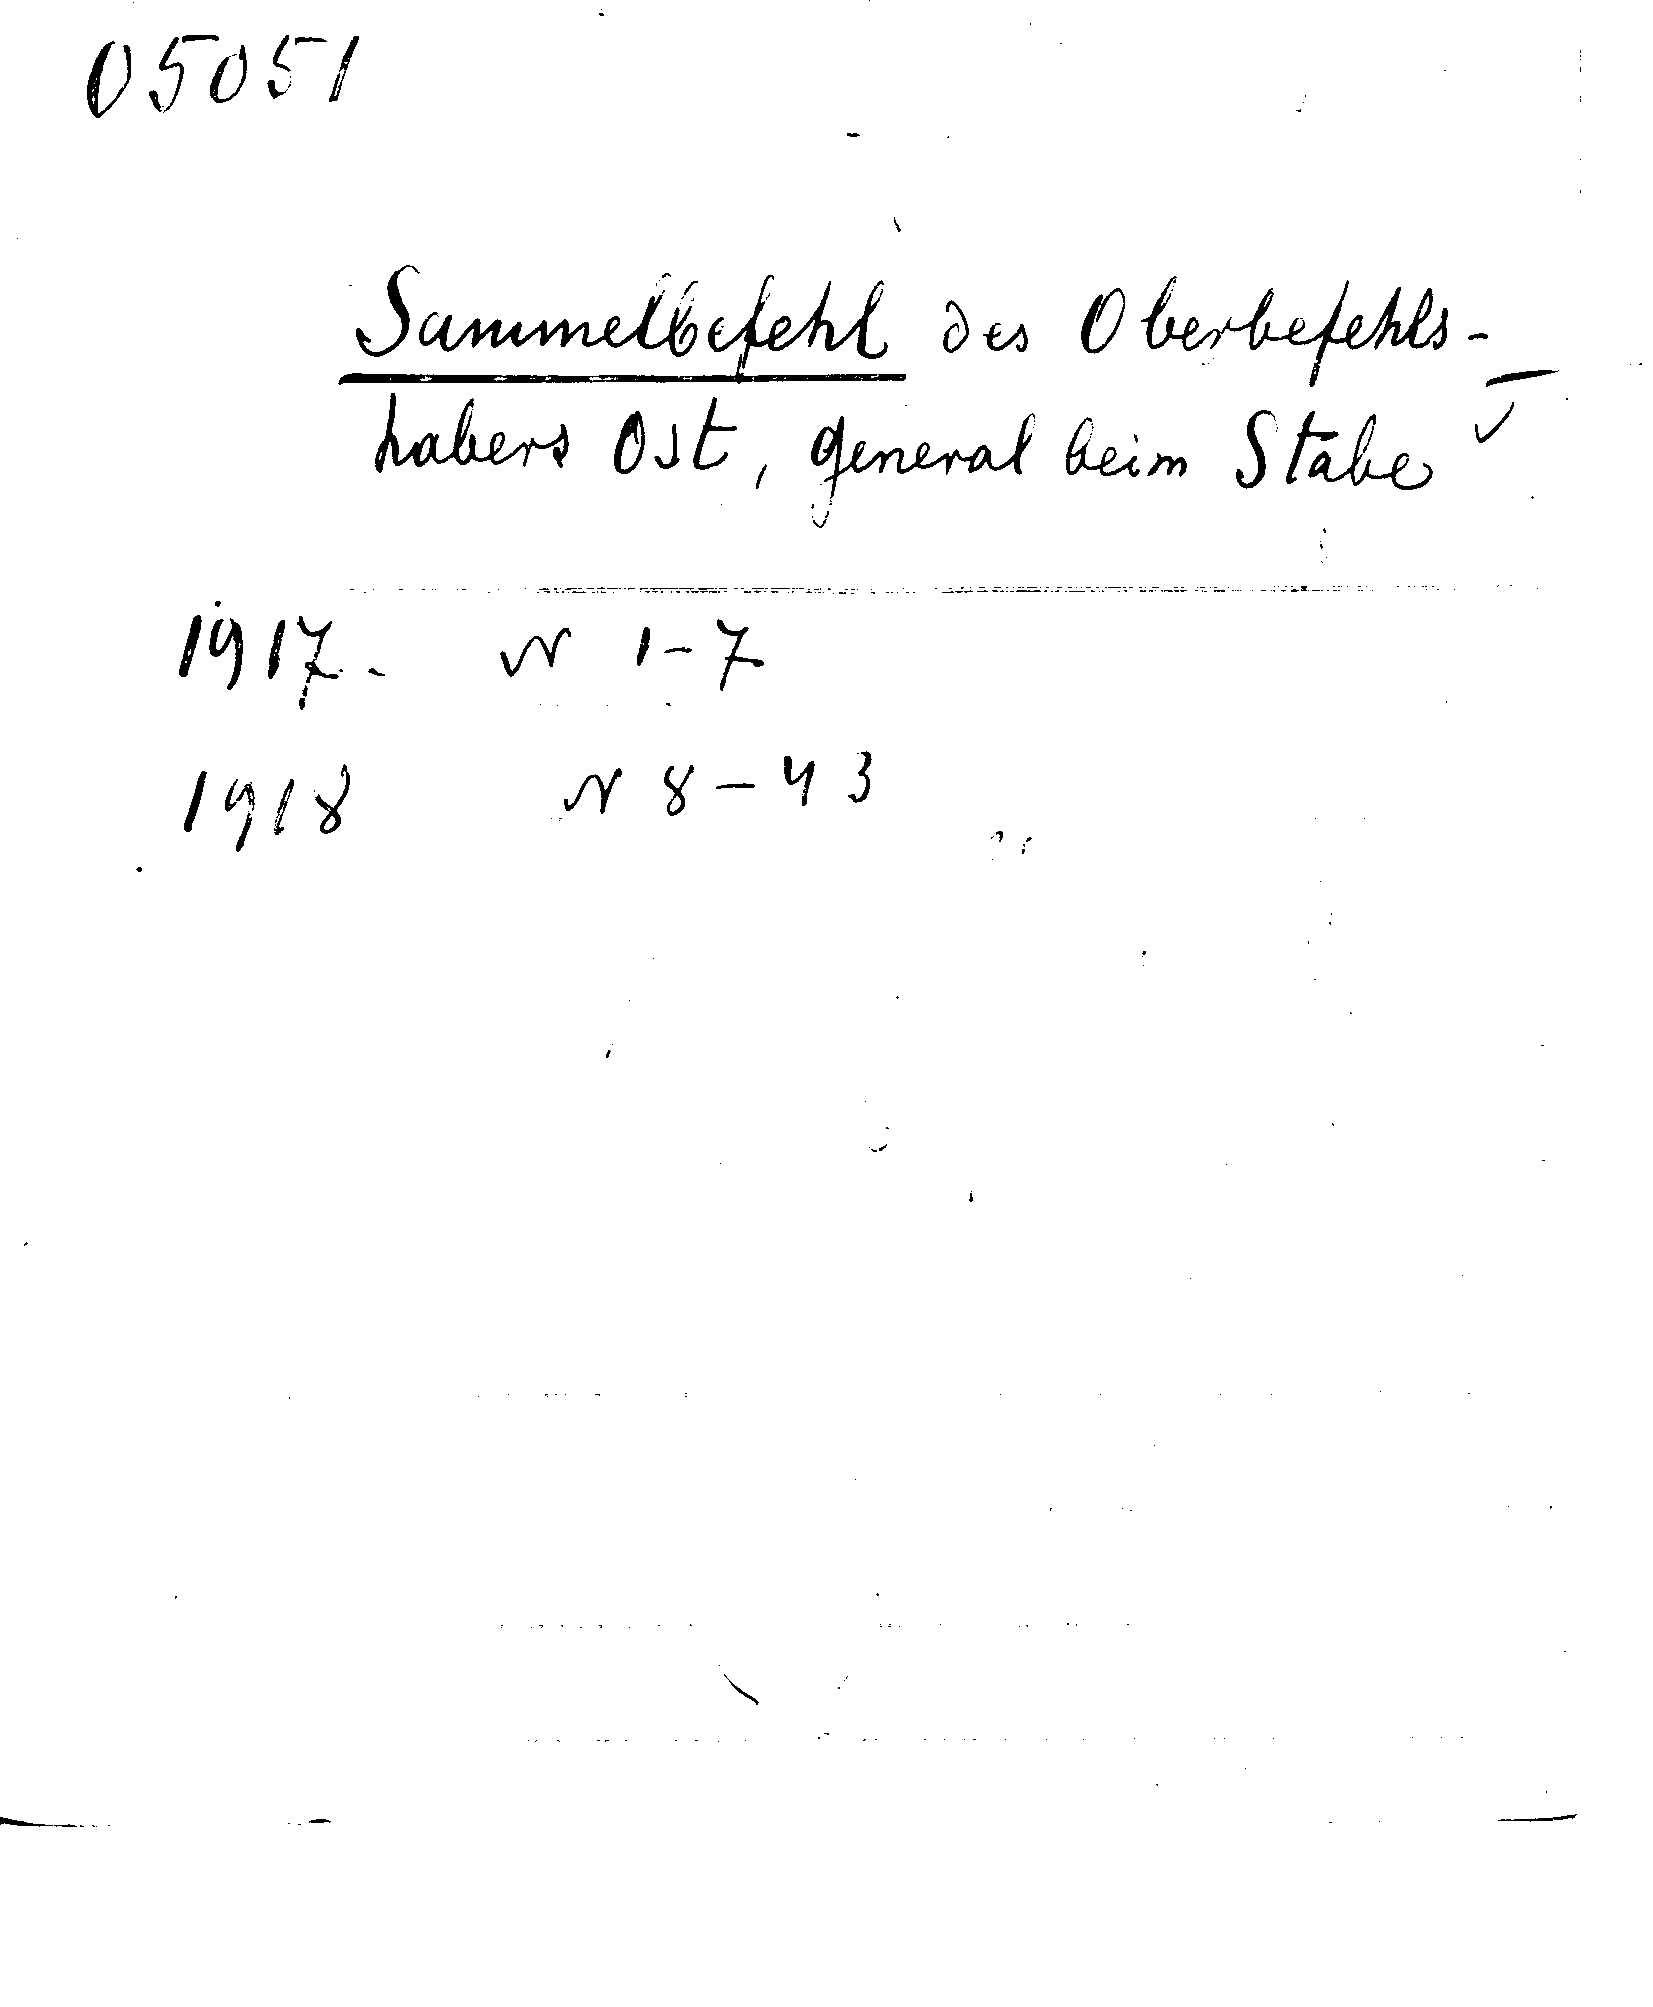 05051
Sammelbefehl des Oberbefehls-
habers Ost, General beim Stabe
1917. N 1-7
1918 N 8-43